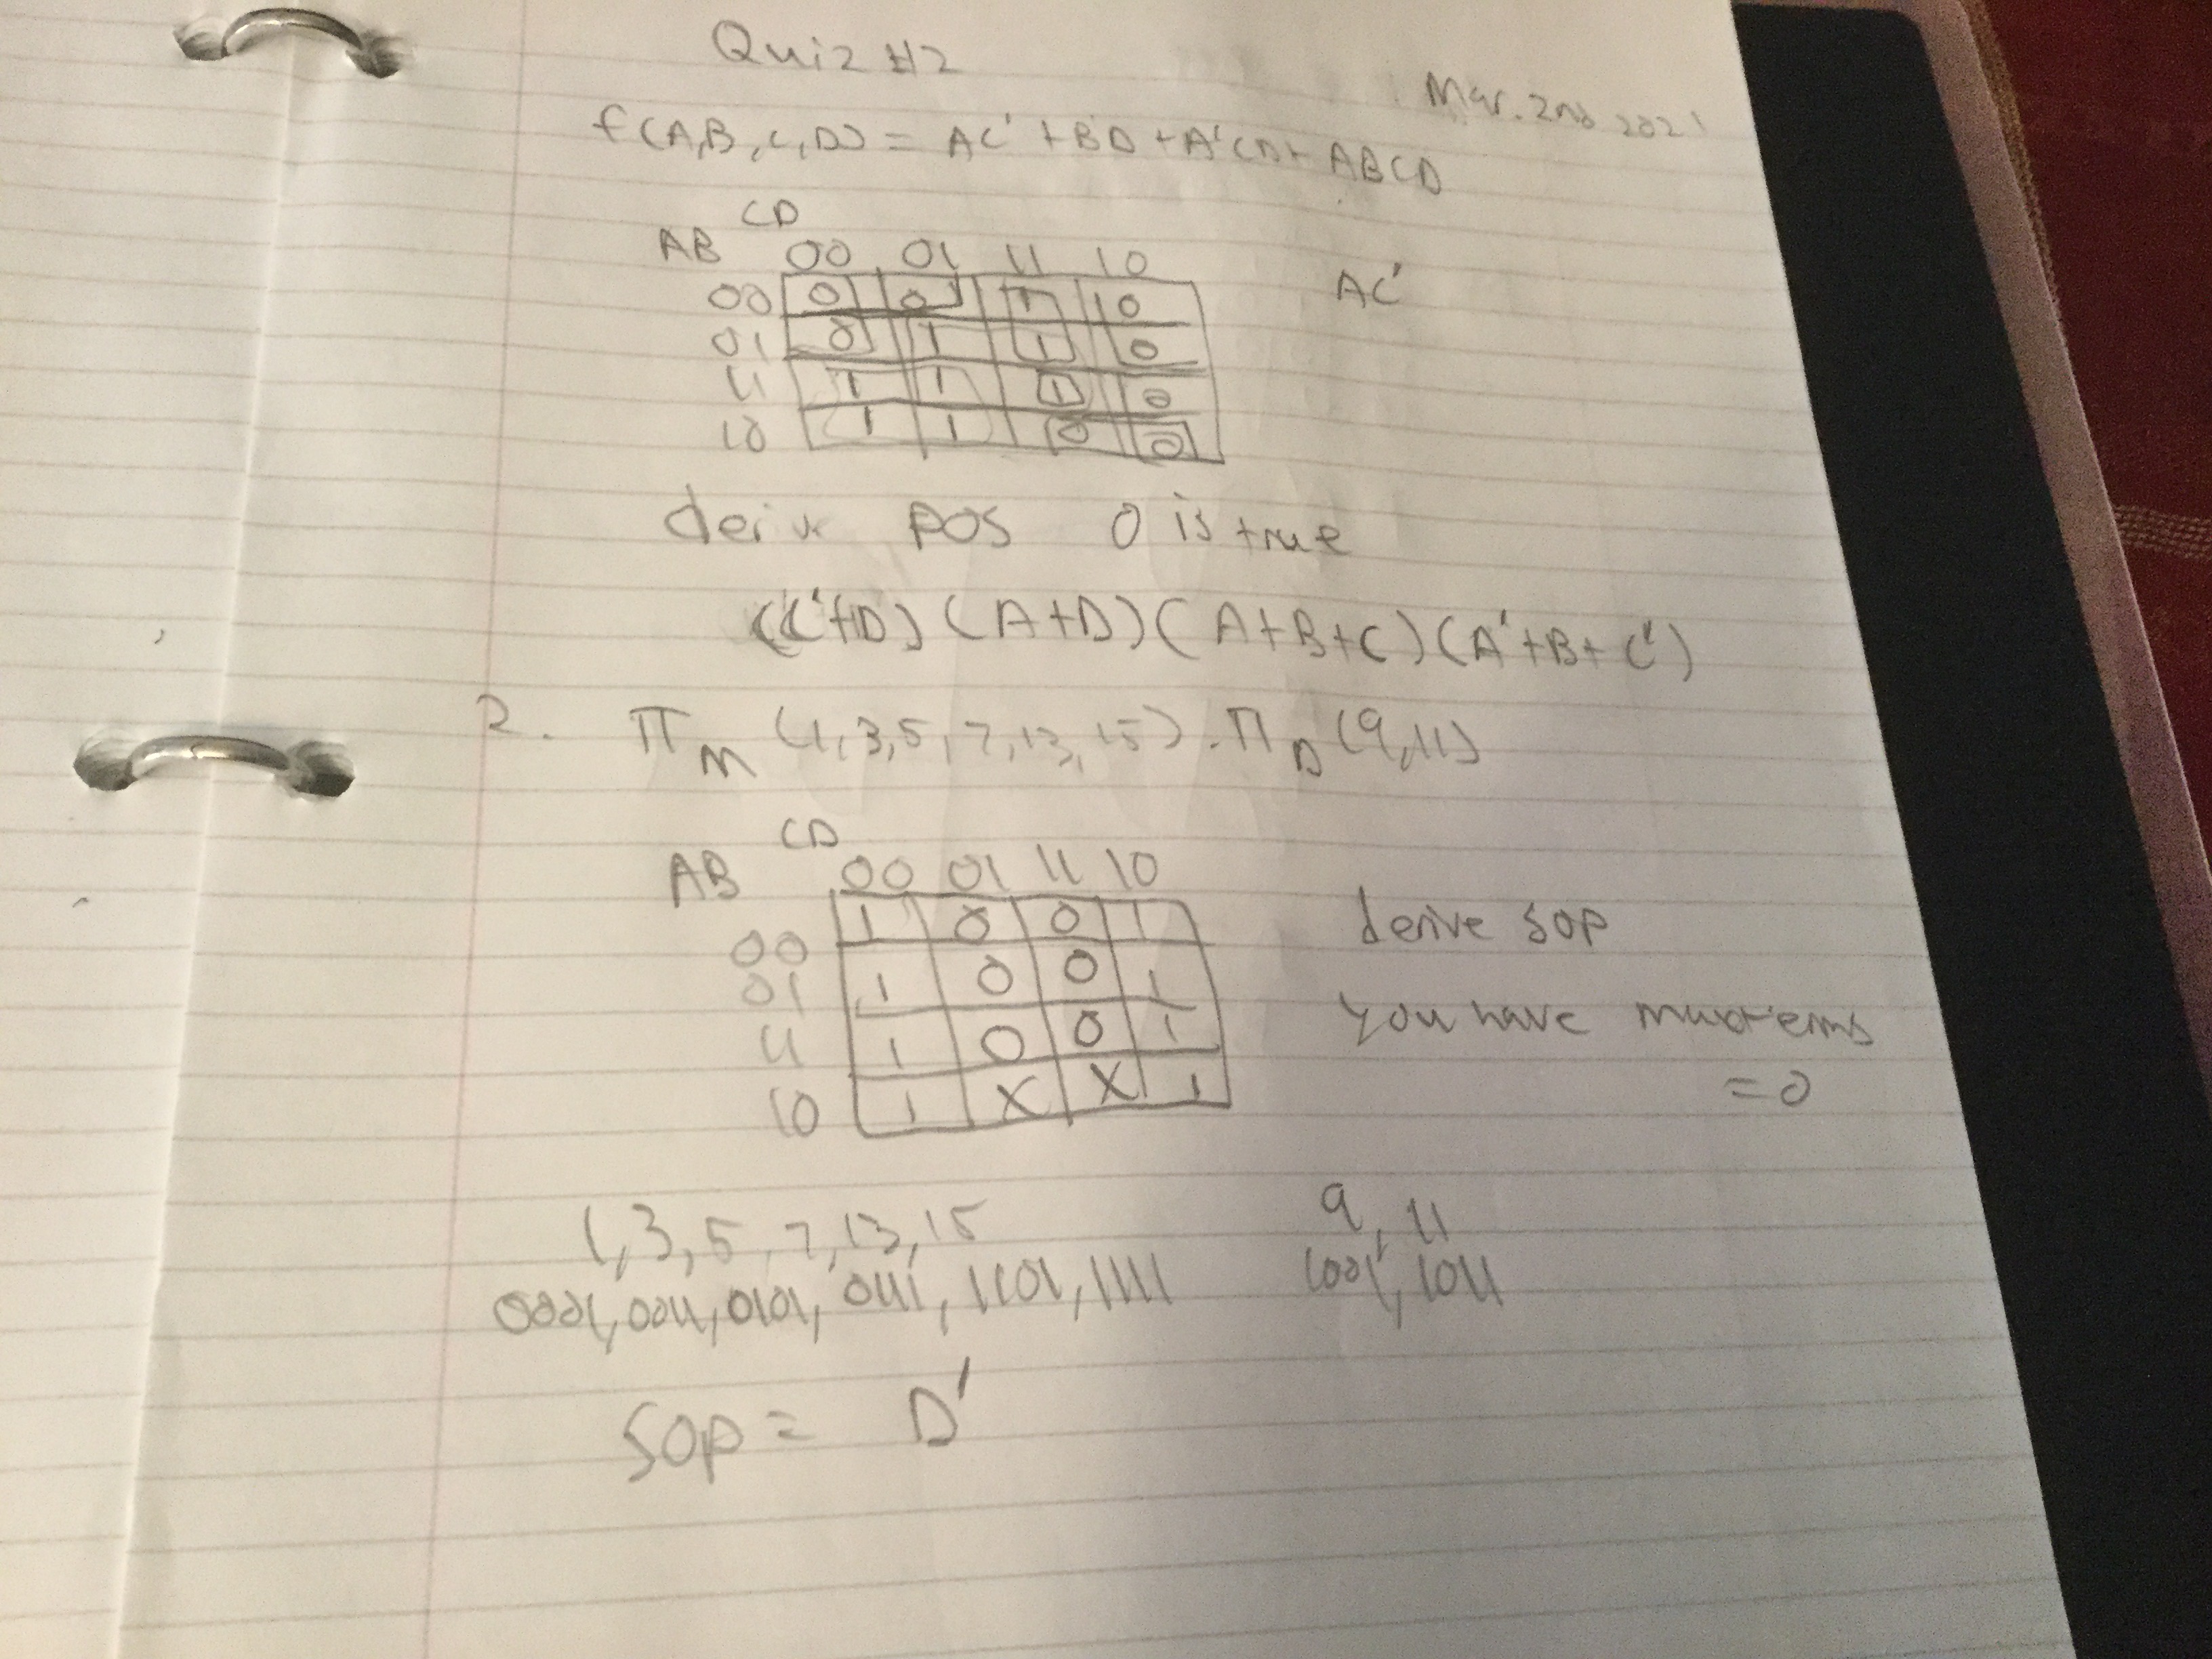 Quiz #2
Mar. 2nd 2021
f(A,B,C,D) = AC' + BD + A'CD + ABCD
CD
AB 00 01 11 10
00 0 0 1 0
01 0 1 1 0
11 1 1 1 0
10 1 1 0 0
AC'
POS 0 is true
(C'+D) (A+D) (A+B+C) (A'+B+C')
2. Π M (1,3,5,7,13,15) . Π D (9,11)
CD
AB 00 01 11 10
00 1 0 0 1
01 1 0 0 1
11 1 0 0 1
10 1 X X 1
derive SOP
you have maxterms
=0
1,3,5,7,13,15
0001,0011,0101,0111,1101,1111
9,11
1001,1011
SOP = D'